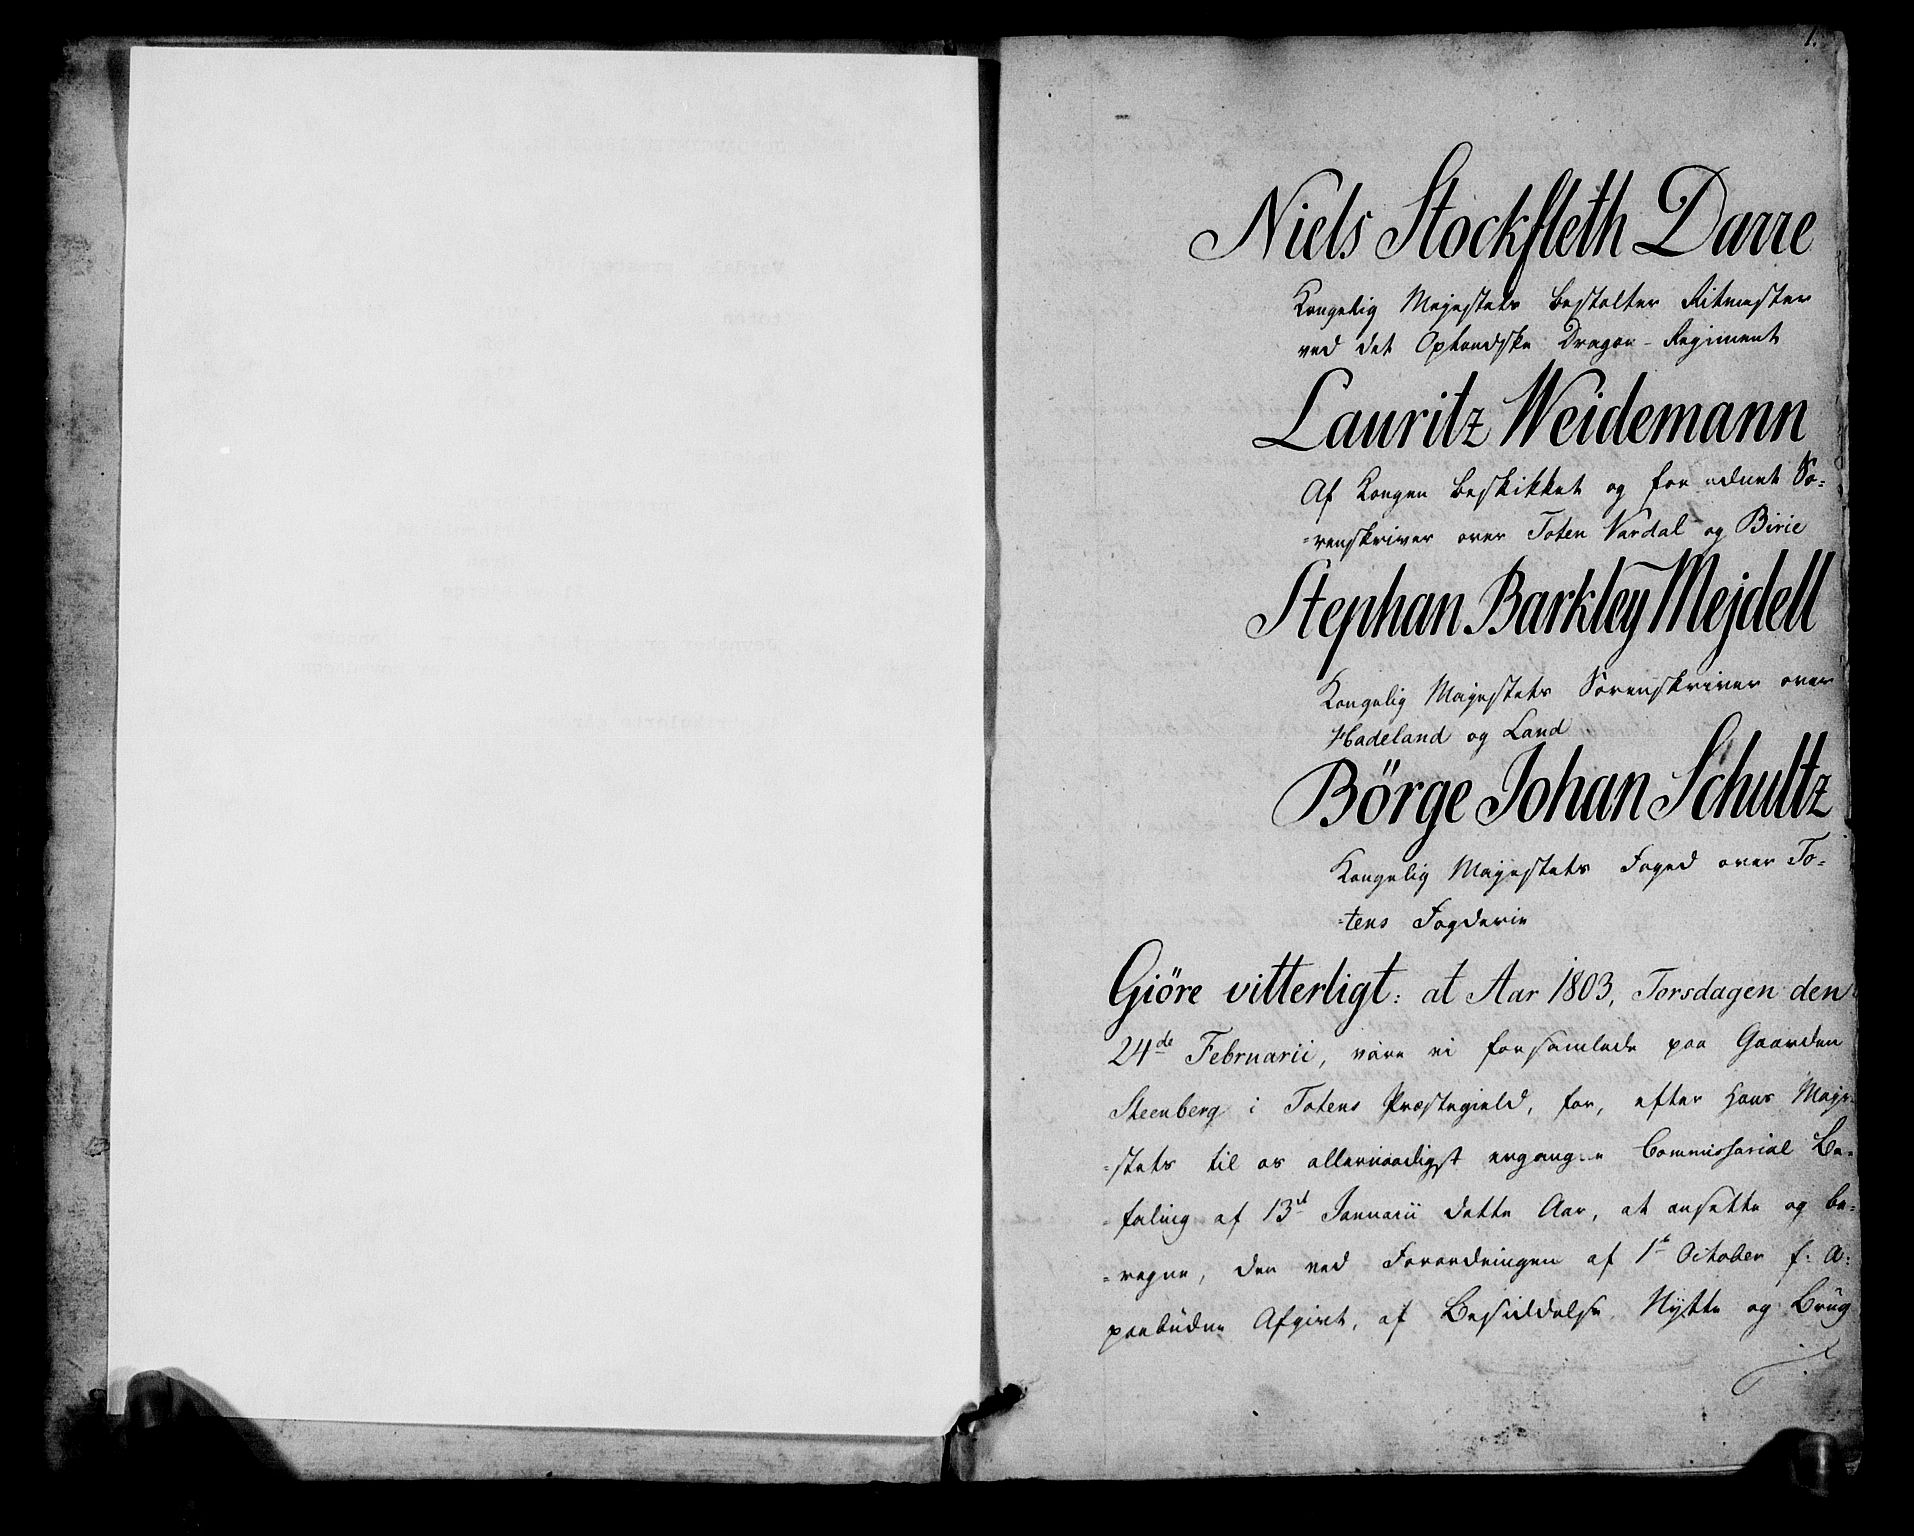 1.
Niels Stockfleth Darre
Kongelig Majestets Bestalter Ritmester
ved det Oplandske Dragon-Regiment
Lauritz Weidemann
Af Kongen Beskikket og for ordnet So=
=renskriver over Toten Vardal og Birie
Stephan Barkley Mejdell
Kongelig Majestets Sorenskriver over
Hadeland og Land
Börge Johan Schultz
Kongelig Majestets Foged over To=
=tens Fogderie
Giöre vitterligt: at Aar 1803, Torsdagen den
24de Februarii, vare vi forsamlede paa Gaarden
Steenberg i Totens Præstegield, for, efter Hans Maje=
=stets til os allernaadigst ergangne Commissorial Be=
=faling af 13d Januarii dette Aar, at ansette og be=
=regne, den ved Forordningen af 1te October f: A:
paabudne Afgivt, af Besiddelse Nytte og Brug